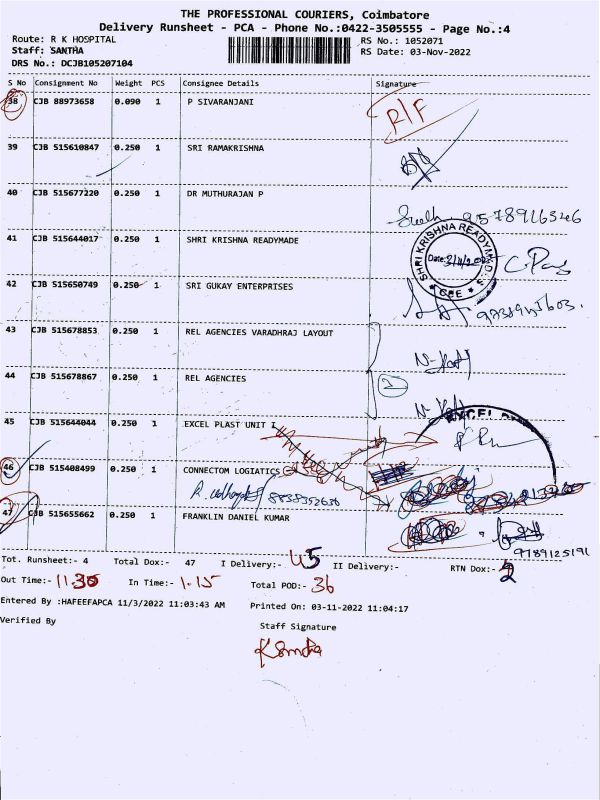 THE PROFESSIONAL COURIERS, Coimbatore
Delivery Runsheet - PCA - Phone No.:0422-3505555 - Page No.:4
Route: R K HOSPITAL RS No.: 1052071
Staff: SANTHA RS Date: 03-Nov-2022
DRS No.: DCJB105207104
S No Consignment No Weight PCS Consignee Details Signature
38 CJB 88973658 0.090 1 P SIVARANJANI R/F
39 CJB 515610847 0.250 1 SRI RAMAKRISHNA
40 CJB 515677220 0.250 1 DR MUTHURAJAN P 9578916346
41 CJB 515644017 0.250 1 SHRI KRISHNA READYMADE
SHRI KRISHNA READYMIX
Date:
42 CJB 515650749 0.250 1 SRI GUKAY ENTERPRISES
43 CJB 515678853 0.250 1 REL AGENCIES VARADHRAJ LAYOUT
44 CJB 515678867 0.250 1 REL AGENCIES 2
45 CJB 515644044 0.250 1 EXCEL PLAST UNIT I EXCEL
46 CJB 515408499 0.250 1 CONNECTOM LOGIATICS
8835352636
47 CJB 515655662 0.250 1 FRANKLIN DANIEL KUMAR
9789125191
Tot. Runsheet:- 4 Total Dox:- 47 I Delivery:- 45 II Delivery:- RTN Dox:- 2
Out Time:- 11.30 In Time:- 1.15 Total POD:- 36
Entered By :HAFEEFAPCA 11/3/2022 11:03:43 AM Printed On: 03-11-2022 11:04:17
Verified By Staff Signature